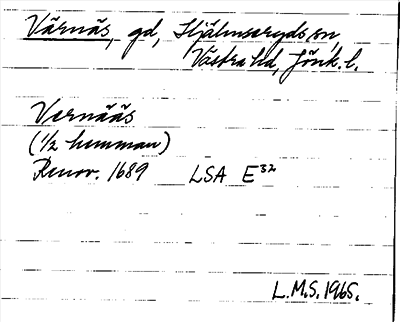 Värnäs, gd, Hjälmseryds sn,
Västra hd, Jönk. l.
Vernääs
(1/2 hemman)
Renov. 1689 LSA E32
L.M.S. 1965.